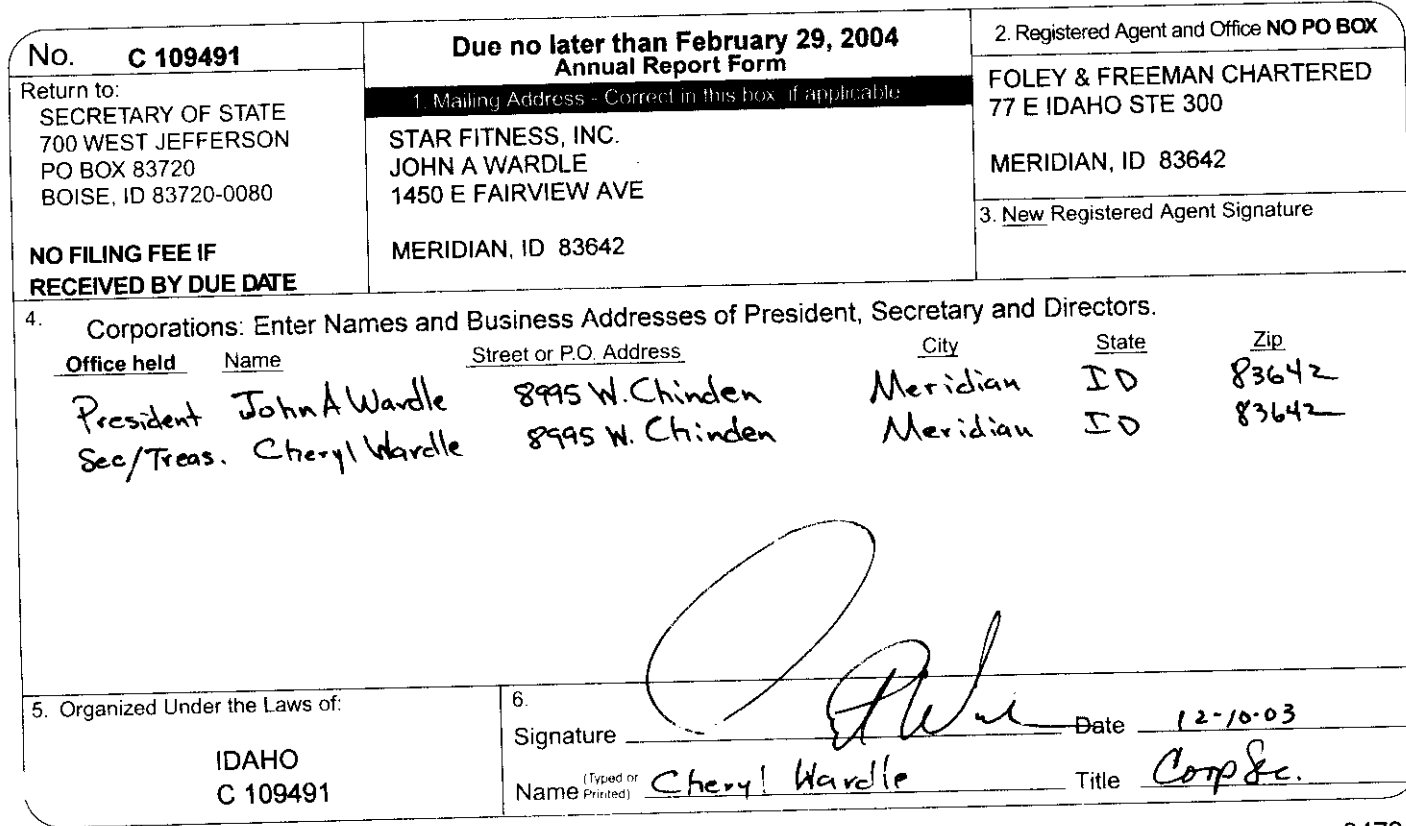 No. C 109491
Return to:
SECRETARY OF STATE
700 WEST JEFFERSON
PO BOX 83720
BOISE, ID 83720-0080
NO FILING FEE IF
RECEIVED BY DUE DATE
Due no later than February 29, 2004
Annual Report Form
1. Mailing Address - Correct in this box if applicable
STAR FITNESS, INC.
JOHN A WARDLE
1450 E FAIRVIEW AVE
MERIDIAN, ID 83642
2. Registered Agent and Office NO PO BOX
FOLEY & FREEMAN CHARTERED
77 E IDAHO STE 300
MERIDIAN, ID 83642
3. New Registered Agent Signature
4. Corporations: Enter Names and Business Addresses of President, Secretary and Directors.
Office held Name Street or P.O. Address City State Zip
President John A Wardle 8995 W. Chinden Meridian ID 83642
Sec/Treas. Cheryl Wardle 8995 W. Chinden Meridian ID 83642
5. Organized Under the Laws of:
IDAHO
C 109491
6.
Signature Date 12-10-03
Name (Typed or Printed) Cheryl Wardle Title Corp Sec.